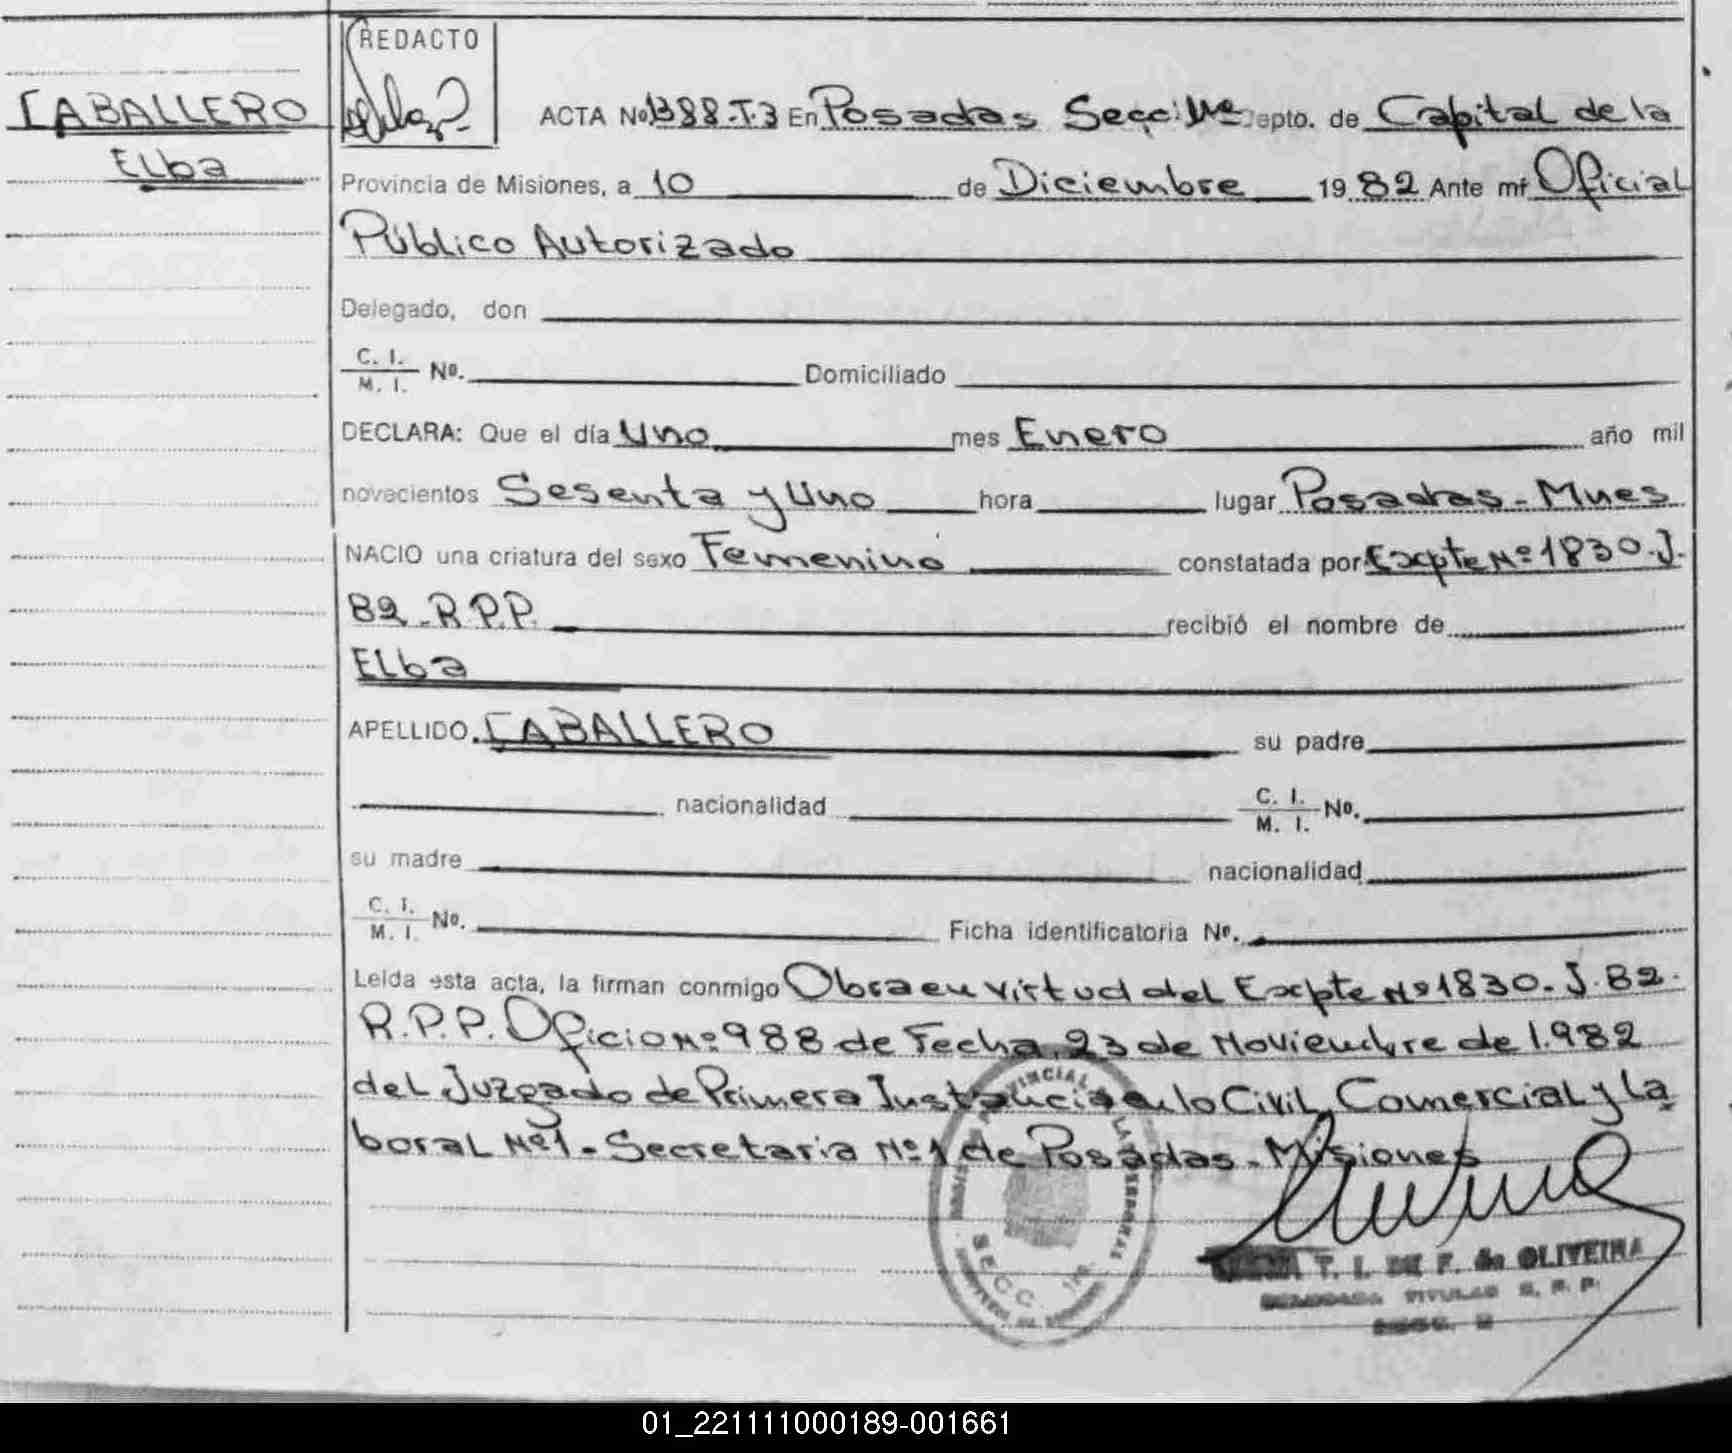 REDACTO
CABALLERO
Elba
ACTA Nº 1388-T.3 En Posadas Secc. 1ª Depto. de Capital de la
Provincia de Misiones, a 10 de Diciembre 1982 Ante mi Oficial
Público Autorizado
Delegado, don
C. I. / M. I. Nº. Domiciliado
DECLARA: Que el día Uno mes Enero año mil
novecientos Sesenta y Uno hora lugar Posadas - Mnes
NACIO una criatura del sexo Femenino constatada por Expte Nº 1830.J.
82-R.P.P. recibió el nombre de
Elba
APELLIDO CABALLERO su padre
nacionalidad C. I. / M. I. Nº.
su madre nacionalidad
C. I. / M. I. Nº. Ficha identificatoria Nº.
Leída esta acta, la firman conmigo Obra en virtud del Expte Nº 1830-J.82-
R.P.P. Oficio Nº 988 de Fecha 23 de Noviembre de 1.982
del Juzgado de Primera Instancia en lo Civil, Comercial y La
boral Nº 1 - Secretaria Nº 1 de Posadas - Misiones
PROVINCIAL DE LAS PERSONAS
SECC. 1ra.
T. I. DE F. de OLIVEIRA
DELEGADA TITULAR R. P. P.
01_221111000189-001661